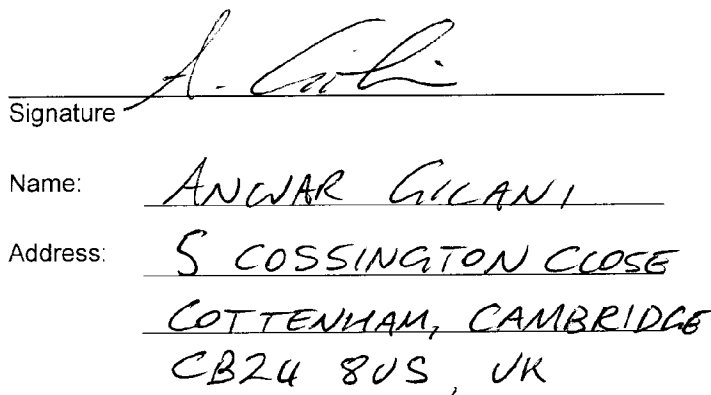 A. Gilani
Signature
Name: ANWAR GILANI
Address: 5 COSSINGTON CLOSE
COTTENHAM, CAMBRIDGE
CB24 8US, UK